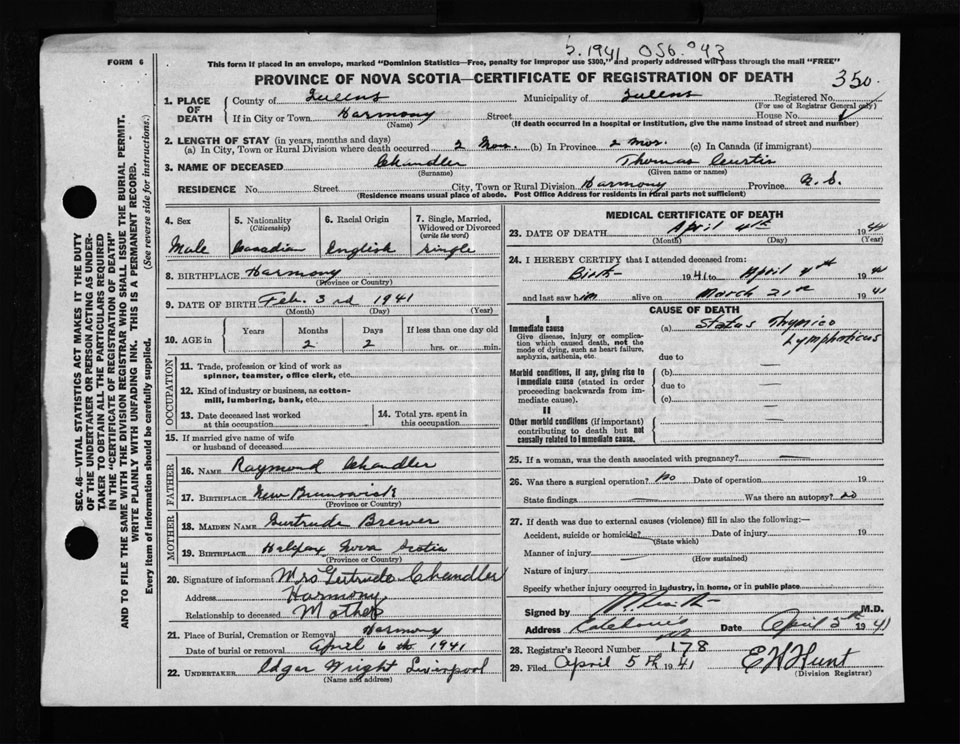 S. 1941 056.043
FORM 6
This form if placed in an envelope, marked "Dominion Statistics—Free, penalty for improper use $300," and properly addressed will pass through the mail "FREE"
PROVINCE OF NOVA SCOTIA—CERTIFICATE OF REGISTRATION OF DEATH
350
1. PLACE OF DEATH
County of Queens Municipality of Queens Registered No.
(For use of Registrar General only)
If in City or Town Harmony Street House No.
(Name) (If death occurred in a hospital or institution, give the name instead of street and number)
2. LENGTH OF STAY (in years, months and days)
(a) In City, Town or Rural Division where death occurred 2 Mos. (b) In Province 2 mos. (c) In Canada (if immigrant)
3. NAME OF DECEASED Chandler Thomas Curtis
(Surname) (Given name or names)
RESIDENCE No. Street City, Town or Rural Division Harmony Province N.S.
(Residence means usual place of abode. Post Office Address for residents in rural parts not sufficient)
4. Sex
Male
5. Nationality
(Citizenship)
Canadian
6. Racial Origin
English
7. Single, Married, Widowed or Divorced
(write the word)
Single
8. BIRTHPLACE Harmony
(Province or Country)
9. DATE OF BIRTH Feb. 3rd 1941
(Month) (Day) (Year)
10. AGE in
Years Months Days If less than one day old
2 2 hrs. or min.
OCCUPATION
11. Trade, profession or kind of work as
spinner, teamster, office clerk, etc.
12. Kind of industry or business, as cotton-
mill, lumbering, bank, etc.
13. Date deceased last worked
at this occupation
14. Total yrs. spent in
this occupation
15. If married give name of wife
or husband of deceased
FATHER
16. NAME Raymond Chandler
17. BIRTHPLACE New Brunswick
(Province or Country)
MOTHER
18. MAIDEN NAME Gertrude Brewer
19. BIRTHPLACE Halifax, Nova Scotia
(Province or Country)
20. Signature of informant Mrs Gertrude Chandler
Address Harmony
Relationship to deceased Mother
21. Place of Burial, Cremation or Removal Harmony
Date of burial or removal April 6th 1941
22. UNDERTAKER Edgar Wright Liverpool
(Name and address)
MEDICAL CERTIFICATE OF DEATH
23. DATE OF DEATH April 4th 19
(Month) (Day) (Year)
24. I HEREBY CERTIFY that I attended deceased from:
Birth 1941 to April 4th 19
and last saw him alive on March 21st 1941
CAUSE OF DEATH
I
Immediate cause
Give disease, injury or complica-
tion which caused death, not the
mode of dying, such as heart failure,
asphyxia, asthenia, etc.
(a) Status Thymico
Lymphaticus
due to —
Morbid conditions, if any, giving rise to
immediate cause (stated in order
proceeding backwards from im-
mediate cause).
(b) —
due to —
(c)
II
Other morbid conditions (if important)
contributing to death but not
causally related to immediate cause.
25. If a woman, was the death associated with pregnancy? —
26. Was there a surgical operation? no Date of operation 19
State findings — Was there an autopsy? no
27. If death was due to external causes (violence) fill in also the following:—
Accident, suicide or homicide? Date of injury 19
(State which)
Manner of injury —
(How sustained)
Nature of injury
Specify whether injury occurred in industry, in home, or in public place
Signed by M.D.
Address Caledonia Date April 5th 1941
28. Registrar's Record Number 178
29. Filed April 5th 1941 E W Hunt
(Division Registrar)
SEC. 46—VITAL STATISTICS ACT MAKES IT THE DUTY
OF THE UNDERTAKER OR PERSON ACTING AS UNDER-
TAKER TO OBTAIN ALL THE PARTICULARS REQUIRED
IN THE "CERTIFICATE OF REGISTRATION OF DEATH"
AND TO FILE THE SAME WITH THE DIVISION REGISTRAR WHO SHALL ISSUE THE BURIAL PERMIT.
WRITE PLAINLY WITH UNFADING INK. THIS IS A PERMANENT RECORD.
Every item of information should be carefully supplied. (See reverse side for instructions.)